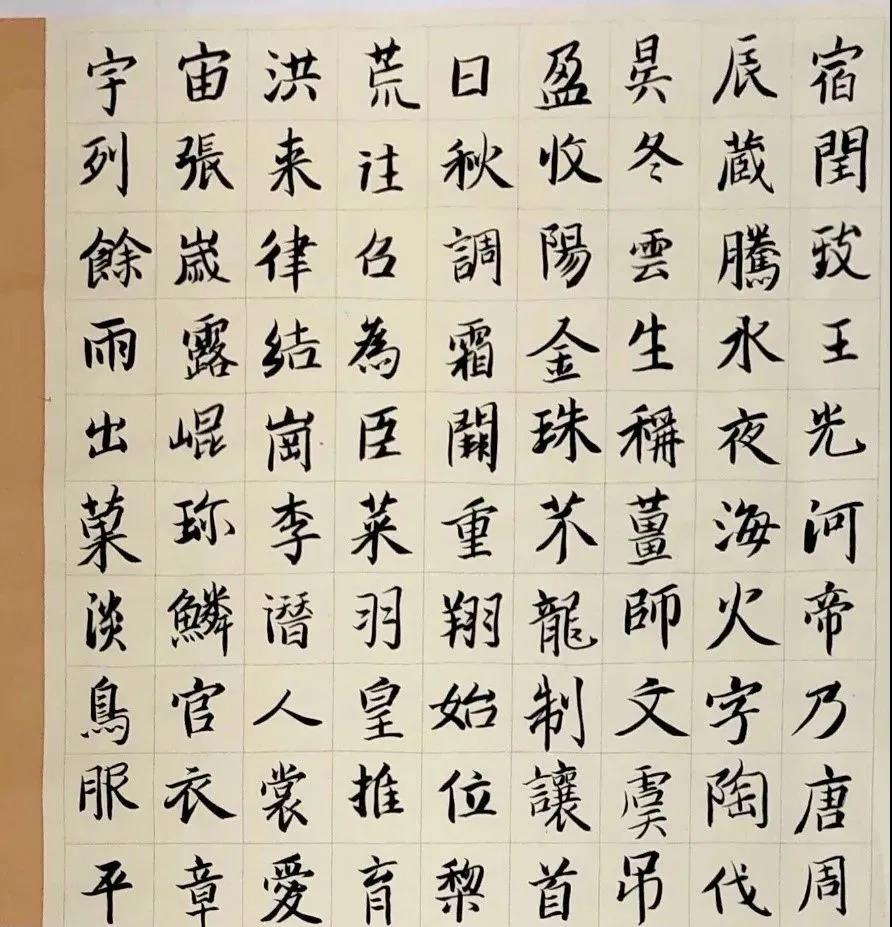 宇宙洪荒日盈昃辰宿
列張来往秋收冬蔵閏
餘歳律召調陽雲騰致
雨露結為霜金生水王
出崐崗臣闕珠稱夜光
菓珎李菜重芥薑海河
淡鱗潛羽翔龍師火帝
鳥官人皇始制文字乃
服衣裳推位讓虞陶唐
平章愛育黎首吊伐周